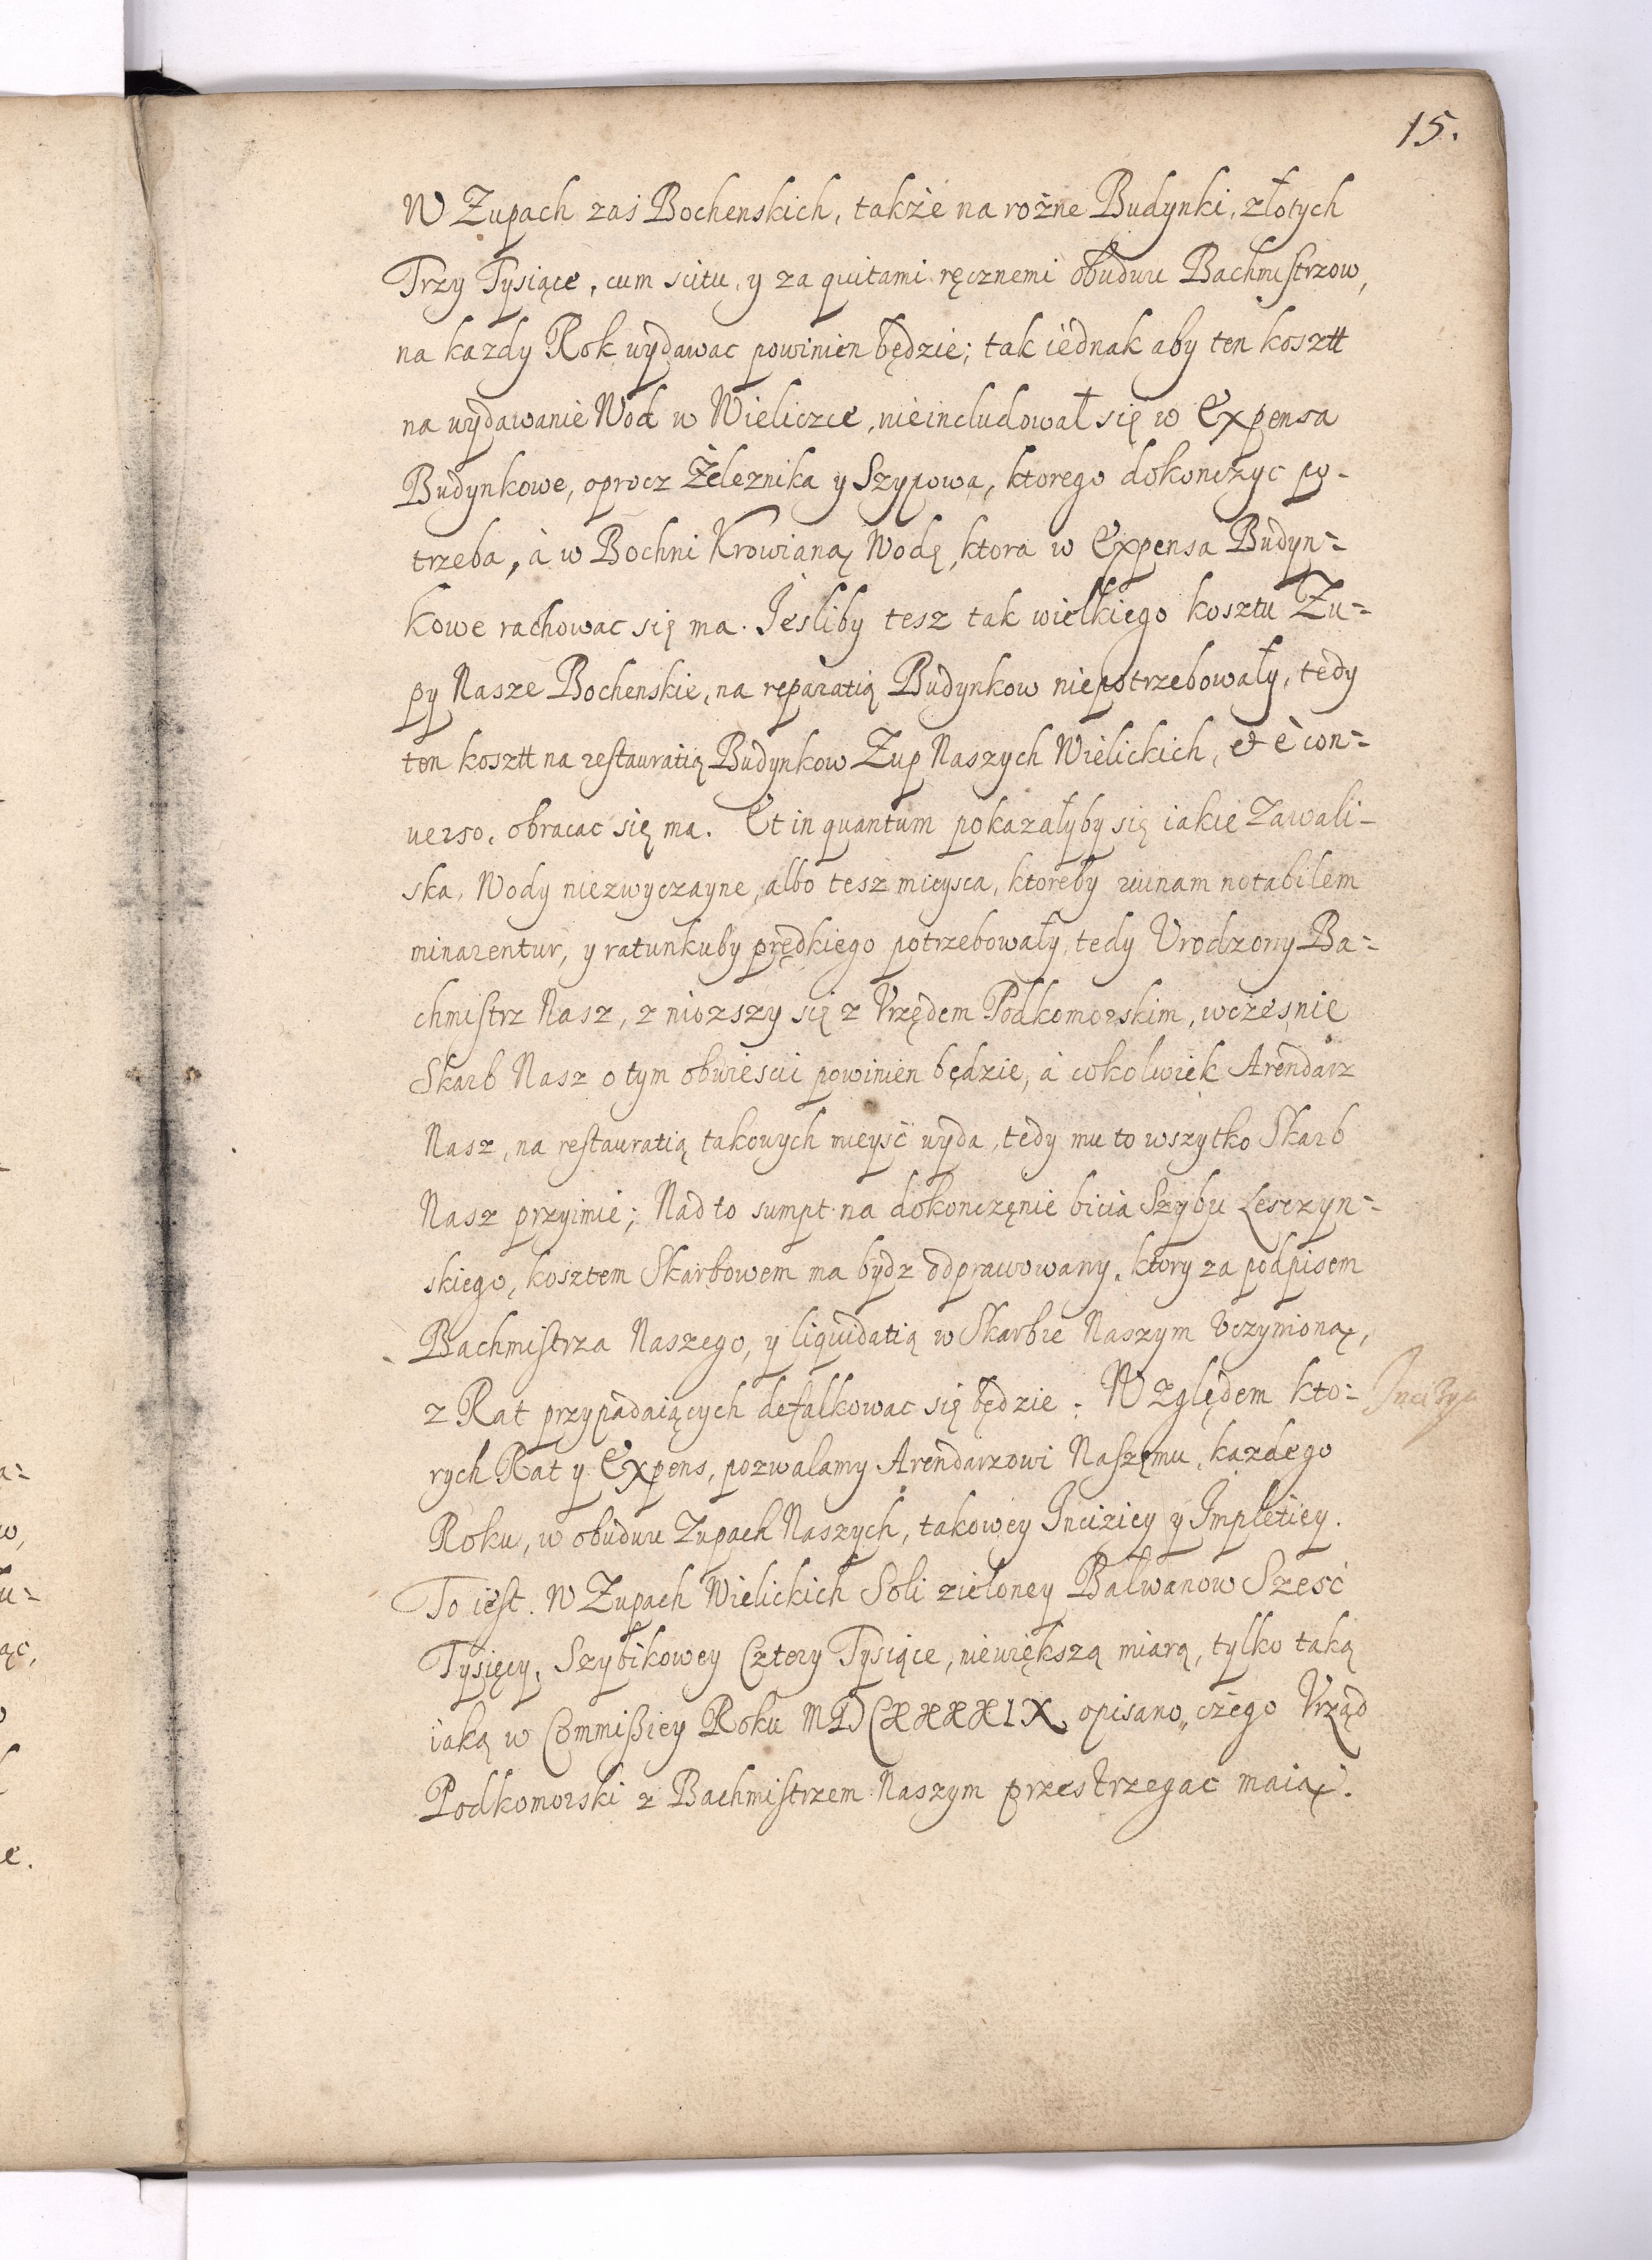 15.
W Zupach zaś Bochenskich, także na rożne Budynki, złotych
Trzy Tysiące, cum scitu, y za quitami ręcznemi obudwu Bachmistrzow,
na kazdy Rok wydawac powinien będzie; tak iednak aby ten kosztt
na wydawanie Wod w Wieliczce, nieincludował się w Expensa
Budynkowe, oprocz Żeleznika y Szypowa, ktorego dokonczyc po-
trzeba, à w Bochni Krowianą Wodę, ktora w Expensa Budyn=
kowe rachowac się ma. Jesliby tesz tak wielkiego kosztu Zu=
py Nasze Bochenskie, na reparatią Budynkow niepotrzebowały, tedy
ten kosztt na restauratią Budynkow Zup Naszych Wielickich, et è con=
verso, obracac się ma. Et in quantum pokazałyby się iakie Zawali-
ska, Wody niezwyczayne, albo tesz mieysca, ktoreby ruinam notabilem
minarentur, y ratunkuby prędkiego potrzebowały, tedy Vrodzony Ba=
chmistrz Nasz, zniozszy się z Vrzędem Podkomorskim, wczesnie
Skarb Nasz o tym obwiescic powinien będzie, à cokolwiek Arendarz
Nasz, na restauratią takowych mieysc wyda, tedy mu to wszytko Skarb
Nasz przyimie; Nad to sumpt na dokonczęnie bicia Szybu Leszczyn=
skiego, kosztem Skarbowem ma bydz odprawowany, ktory za podpisem
Bachmistrza Naszego, y liquidatią w Skarbie Naszym Vczynioną,
z Rat przypadaiących defalkowac się będzie. Względem kto=
Incizya
rych Rat y Expens, pozwalamy Arendarzowi Naszęmu, kazdego
Roku, w obudwu Zupach Naszych, takowey Inciziey y Impletiey.
To iest. W Zupach Wielickich Soli zieloney Balwanow Szesc
Tysięcy, Szybikowey Cztery Tysiące, niewiększą miarą, tylko taką
iaką w Commissiey Roku MDCXXXXIX opisano, czego Vrząd
Podkomorski z Bachmistrzem Naszym przestrzegac maią.